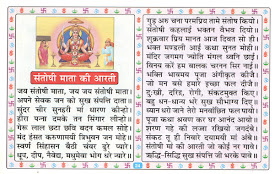 संतोषी माता की आरती
जय संतोषी माता, जय जय संतोषी माता
अपने सेवक जन को सुख संपति दाता ।
सुंदर चीर सुनहरी मां धारण कीन्हों
हीरा पन्ना दमके तन सिंगार लीन्हो
गेरू लाल छटा छवि बदन कमल सोहे
मंद हंसत करुणामयी त्रिभुवन जन मोहे
स्वर्ण सिंहासन बैठी चंवर ढुरे प्यारे
धूप, दीप, नैवेद्य, मधुमेवा भोग धरे न्यारे
गुड़ अरु चना परमप्रिय तामे संतोष कियो
संतोषी कहलाई भक्तन वैभव दियो
शुक्रवार प्रिय मानत आज दिवस सो ही
भक्त मण्डली आई कथा सुनत मोही
मंदिर जगमग ज्योति मंगल ध्वनि छाई
विनय करें हम बालक चरनन सिर नाई
भक्ति भावमय पूजा अंगीकृत कीजै
जो मन बसे हमारे इच्छा फल दीजै
दुःखी, दरिद्र, रोगी, संकटमुक्त किए
बहु धन-धान्य भरे सुख सौभाग्य दिए
ध्यान धरो जाने तेरो मनवांछित फल पायो
पूजा कथा श्रवण कर घर आनंद आयो
शरण गहे की लज्जा रखियो जगदंबे
संकट तू ही निवारे दयामयी मां अंबे
संतोषी मां की आरती जो कोई नर गावे
ऋद्धि-सिद्धि सुख संपति जी भरके पावे